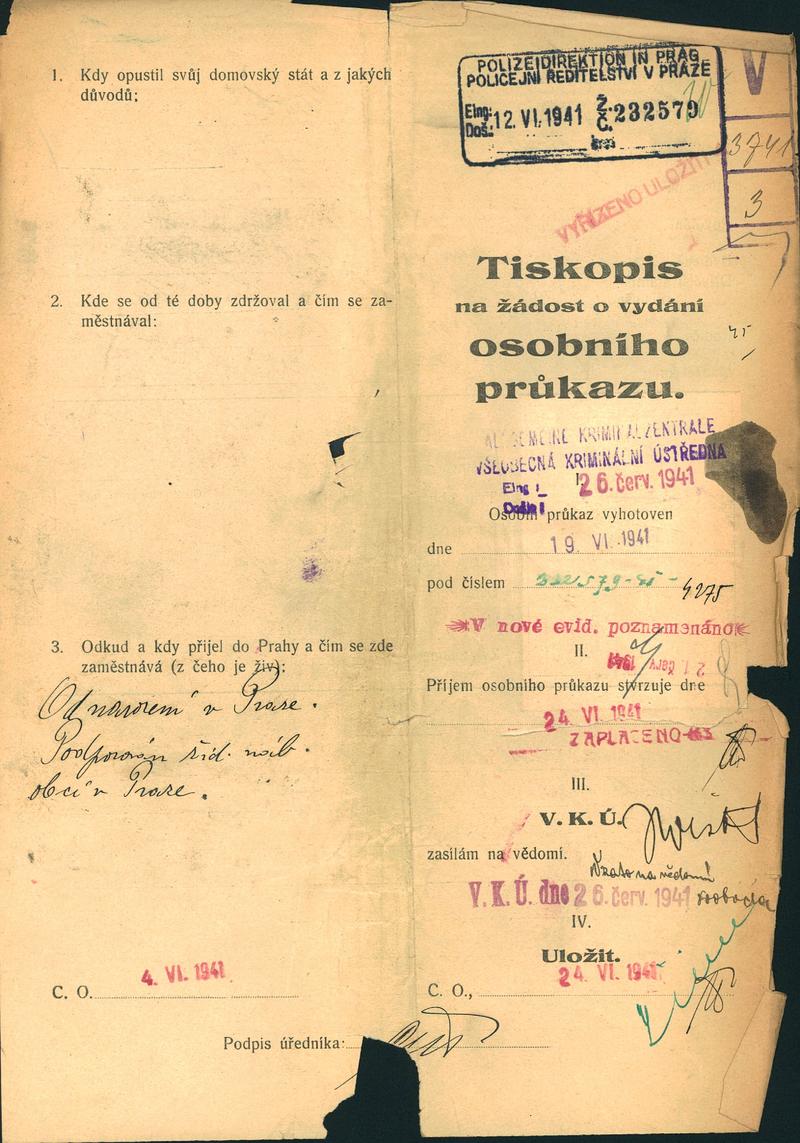 1. Kdy opustil svůj domovský stát a z jakých
důvodů:
2. Kde se od té doby zdržoval a čím se za-
městnával:
3. Odkud a kdy přijel do Prahy a čím se zde
zaměstnává (z čeho je živ):
Od narození v Praze.
Podporován žid. náb.
obcí v Praze.
C. O. 4. VI. 1941
Podpis úředníka:
POLIZEIDIREKTION IN PRAG
POLICEJNÍ ŘEDITELSTVÍ V PRAZE
Eing:
Doš.: 12. VI. 1941 Ž.
Č. 232579
V
3741
3
VYŘÍZENO ULOŽIT
Tiskopis
na žádost o vydání
osobního
průkazu.
ALLGEMEINE KRIMINALZENTRALE
VŠEOBECNÁ KRIMINÁLNÍ ÚSTŘEDNA
I.
Eing.:
Došlo: 26. červ. 1941
Osobní průkaz vyhotoven
dne 19. VI. 1941
pod číslem 4275
V nové evid. poznamenáno
II.
Příjem osobního průkazu stvrzuje dne
24. VI. 1941
ZAPLACENO
III.
V. K. Ú.
zasílám na vědomí.
Vzato na vědomí
V. K. Ú. dne 26. červ. 1941 svoboda
IV.
Uložit.
C. O., 24. VI. 1941